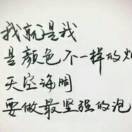 我就是我
是颜色不一样的
天空海阔
要做最坚强的泡